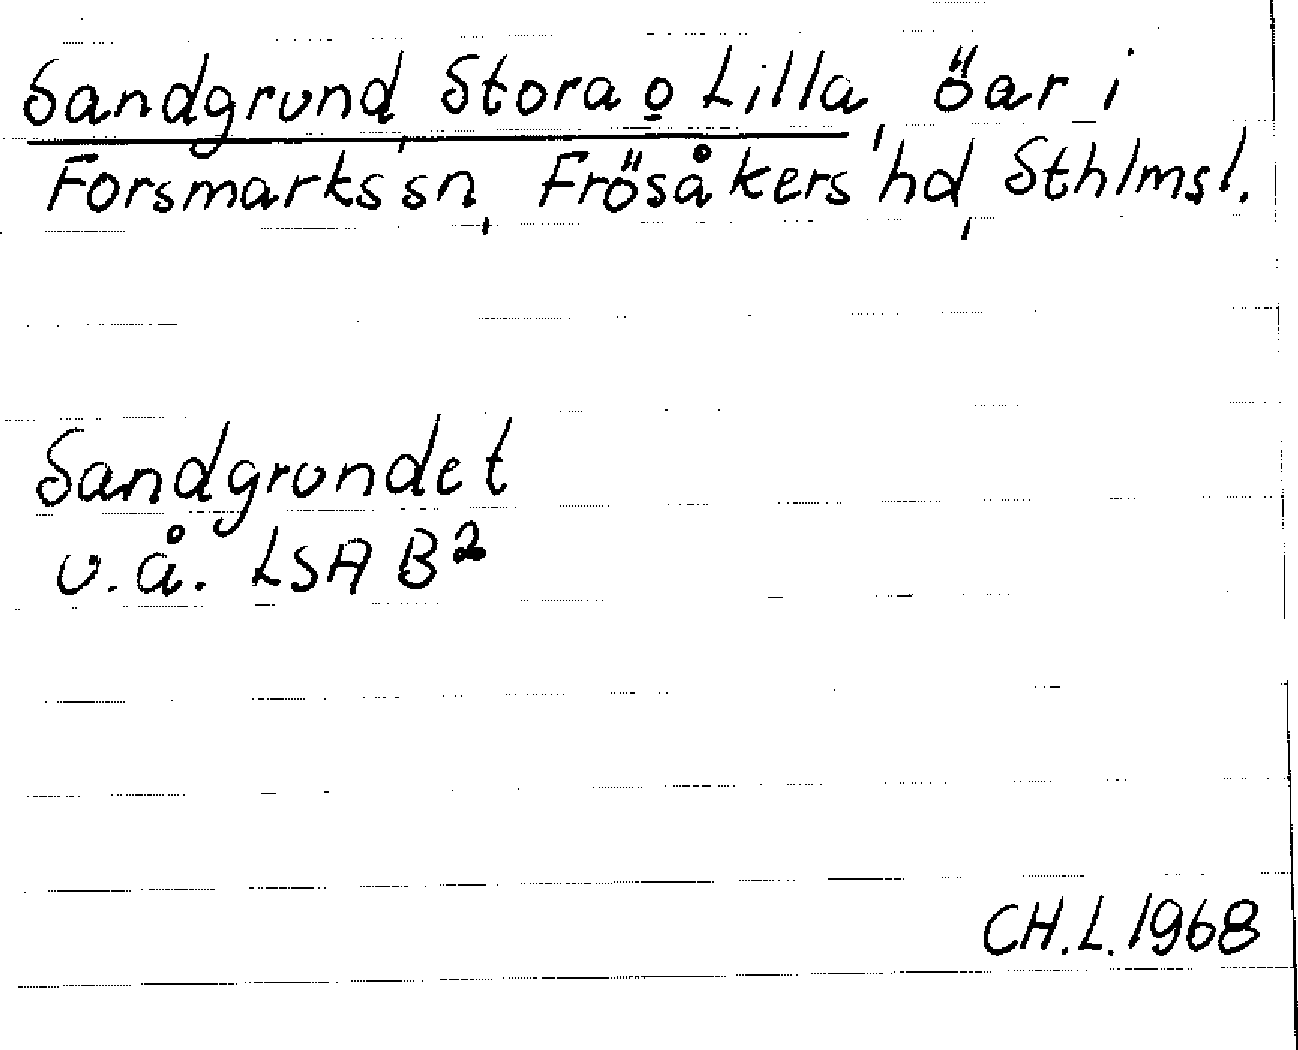 Sandgrund, Stora o Lilla, öar i
Forsmarks sn, Frösåkers hd, Sthlmsl.
Sandgrundet
u.å. LSA B²
CH.L.1968